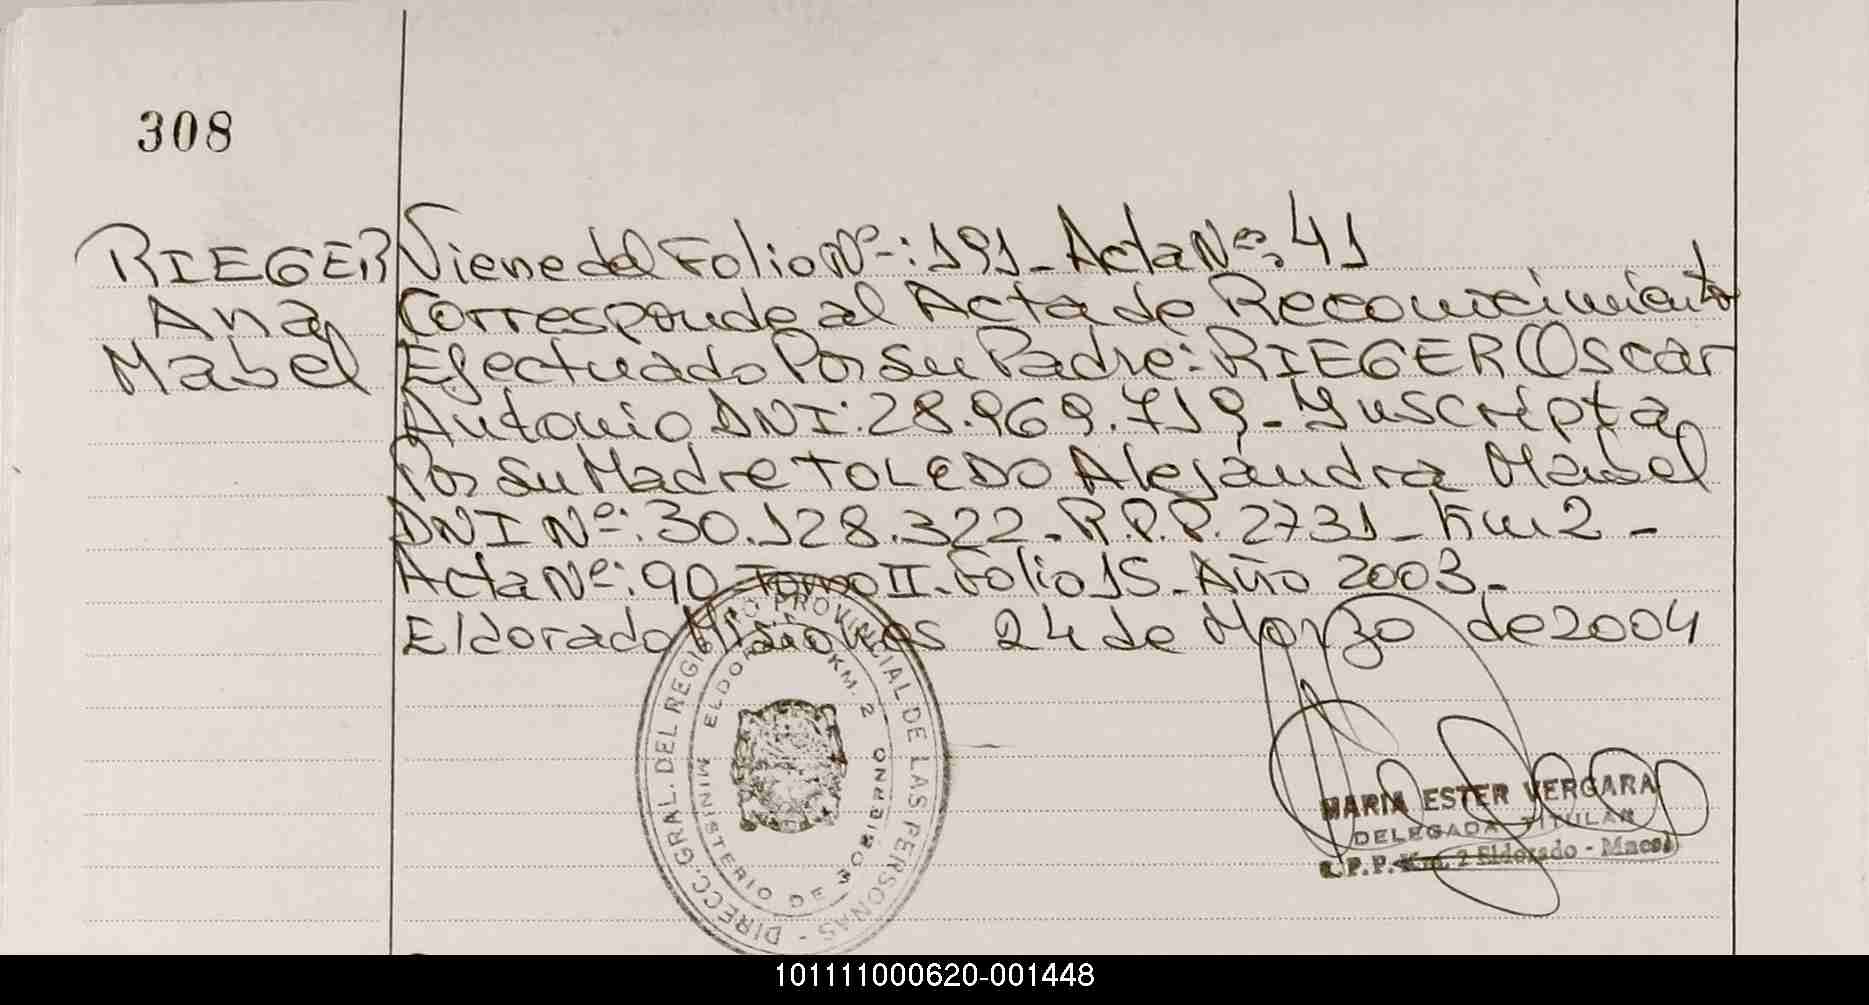 308
RIEGER
Ana
Mabel
Viene del Folio Nº: 191 - Acta Nº: 41
Corresponde al Acta de Reconocimiento
Efectuado Por su Padre: RIEGER Oscar
Antonio DNI: 28.969.719 - Inscripta
Por su Madre TOLEDO Alejandra Mabel
DNI Nº: 30.128.322 - R.P.P. 2731 - Km 2 -
Acta Nº: 90 Tomo II - Folio 15 - Año 2003 -
Eldorado Misiones 24 de Marzo de 2004
DIRECC. GRAL. DEL REGISTRO PROVINCIAL DE LAS PERSONAS -
MINISTERIO DE GOBIERNO
ELDORADO KM. 2
MARIA ESTER VERGARA
DELEGADA TITULAR
R.P.P. Km. 2 Eldorado - Mnes.
101111000620-001448